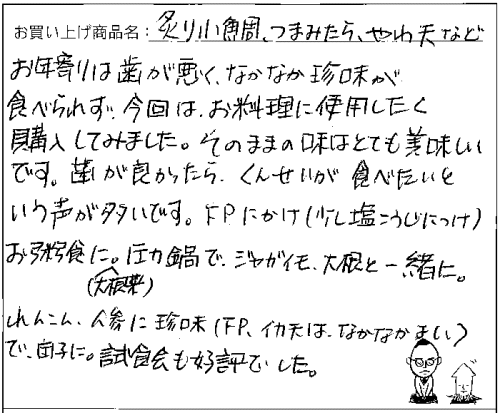 お買い上げ商品名：炙り小魚周、つまみたら、やわ天など
お年寄りは歯が悪く、なかなか珍味が
食べられず、今回は、お料理に使用したく
購入してみました。そのままの味はとても美味しい
です。歯が良かったら、くんせいが食べたいと
いう声が多いです。FPにかけ（少し塩こうじにつけ）
お粥食に。圧力鍋で、ジャガイモ、大根と一緒に。
（大根来）
れんこん、人参に珍味（FP、イカ天は、なかなかましい）
で、団子に。試食会も好評でした。